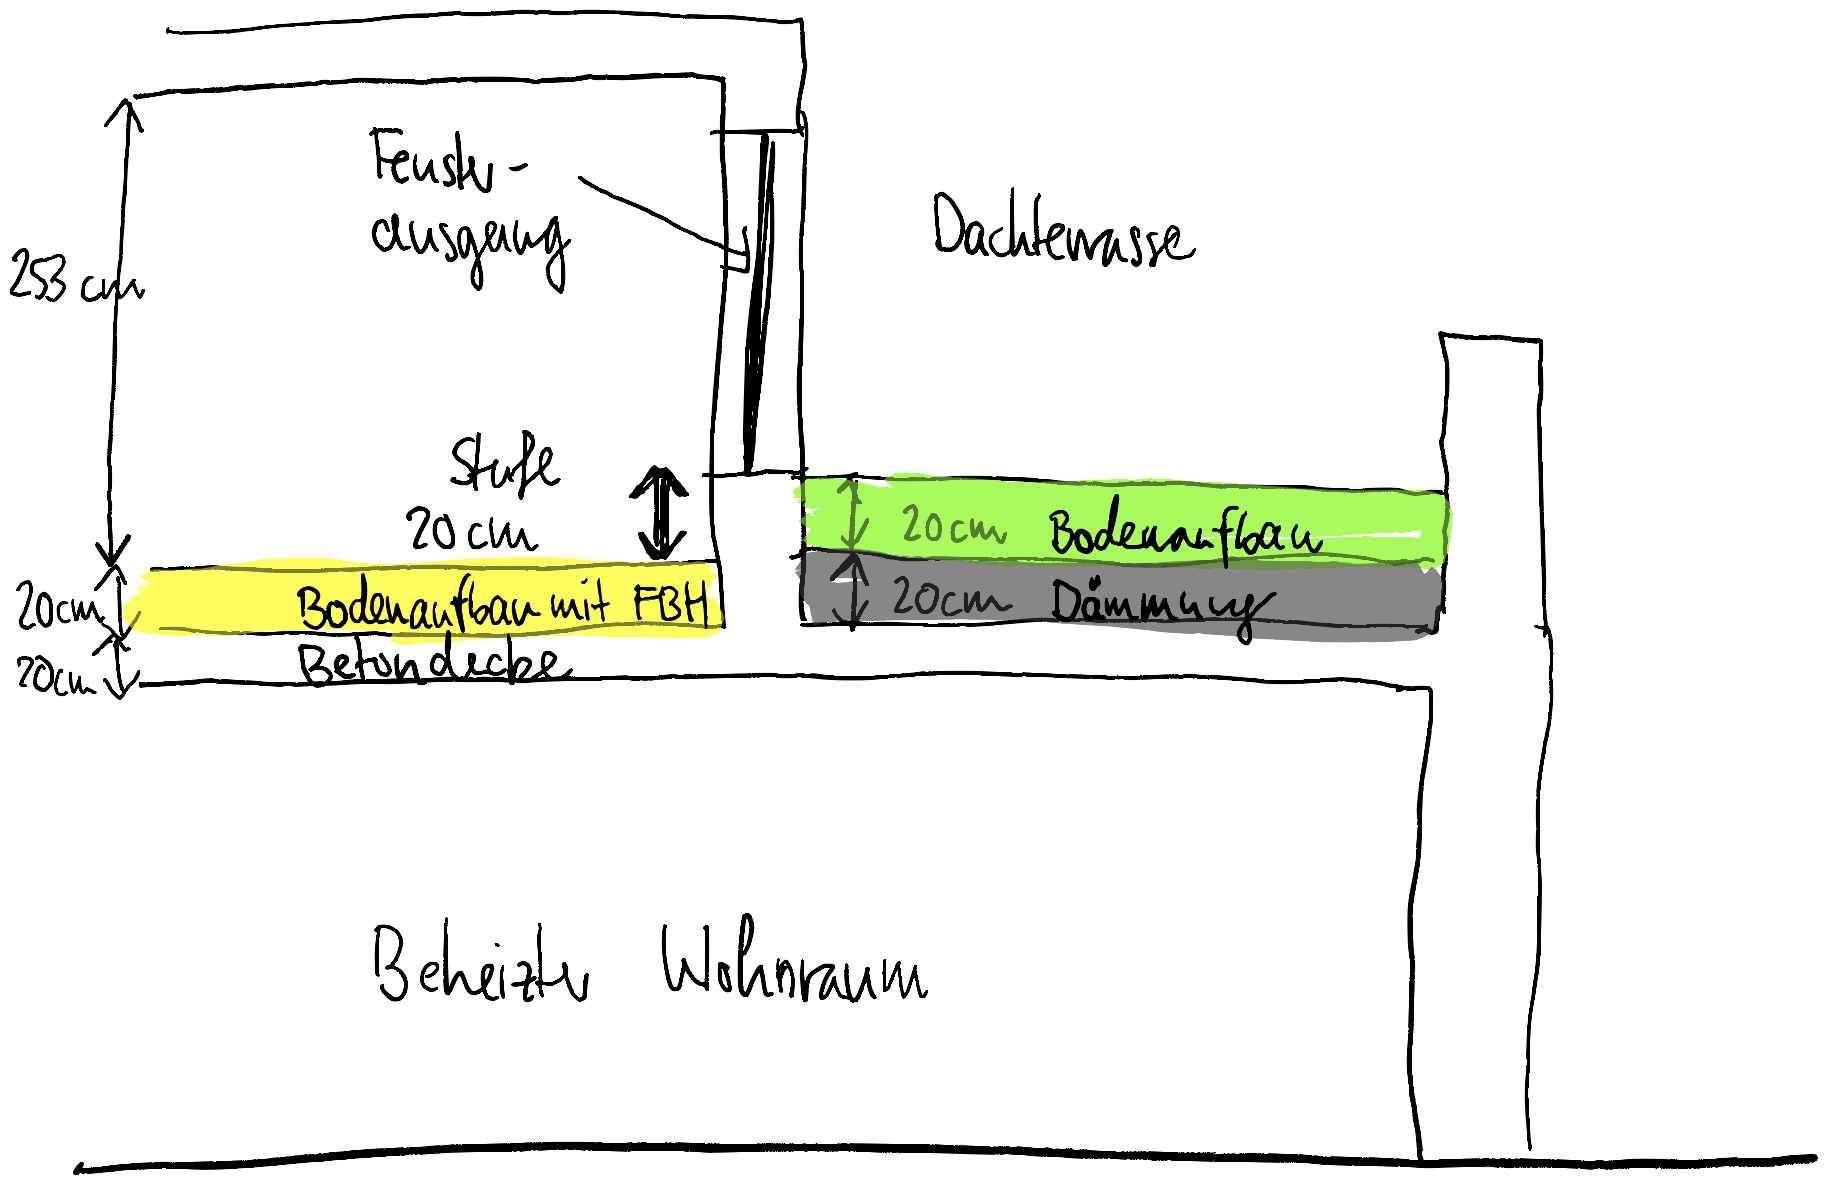 Fenster-
ausgang
Dachterrasse
253 cm
Stufe
20 cm
20 cm Bodenaufbau
20cm Bodenaufbau mit FBH
20cm Dämmung
20cm Betondecke
Beheizter Wohnraum